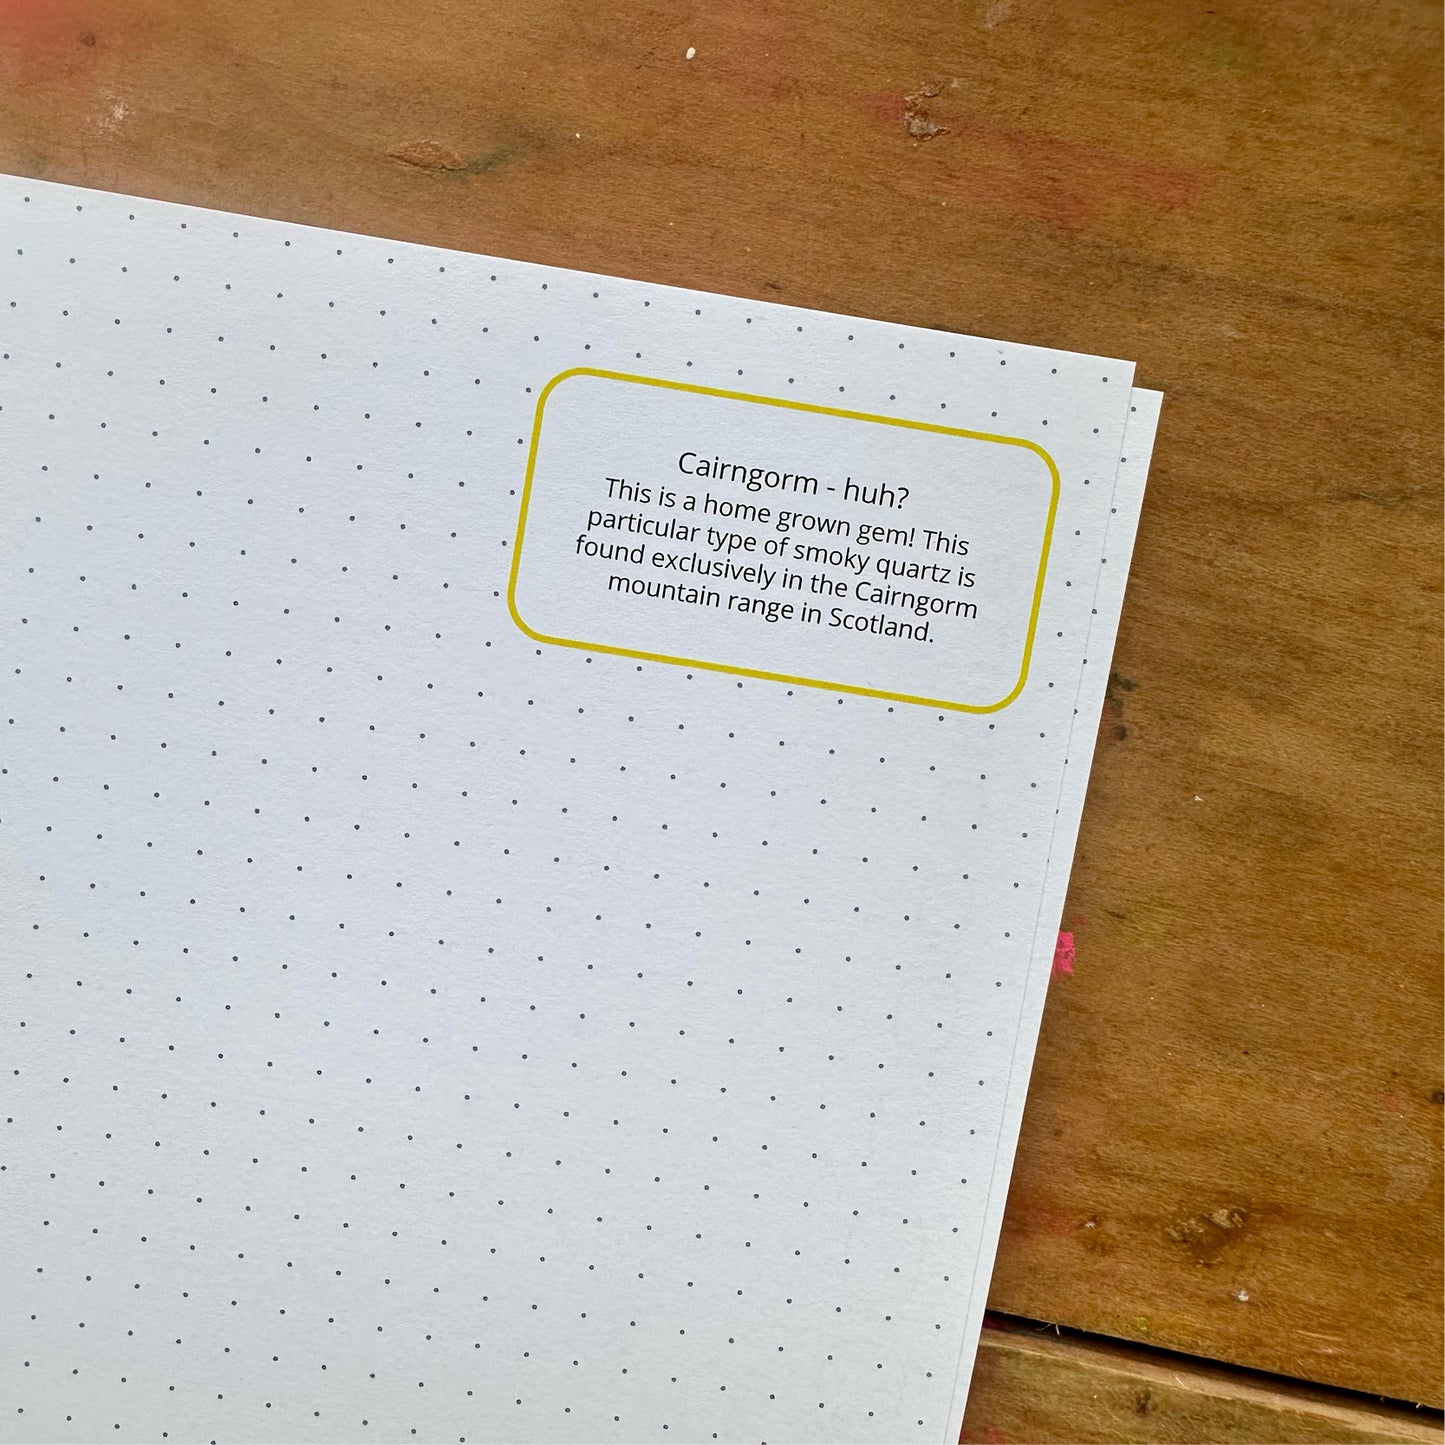 Cairngorm - huh?
This is a home grown gem! This
particular type of smoky quartz is
found exclusively in the Cairngorm
mountain range in Scotland.